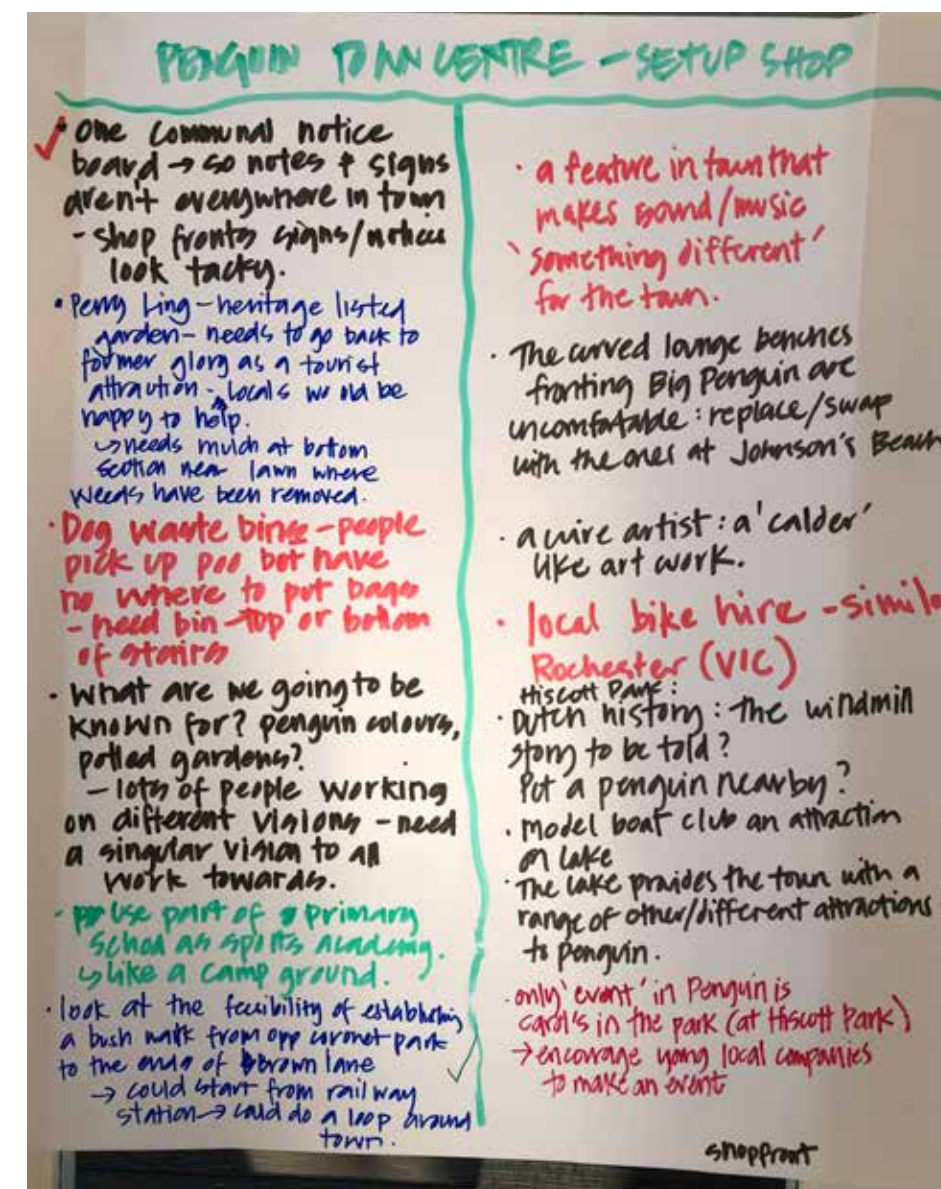 PENGUIN TOWN CENTRE - SETUP SHOP
• One communal notice
board → so notes & signs
aren't everywhere in town
- shop fronts signs/notices
look tacky.
• Perry Ling - heritage listed
garden - needs to go back to
former glory as a tourist
attraction - locals would be
happy to help.
↳ needs mulch at bottom
section near lawn where
weeds have been removed.
• Dog waste bins - people
pick up poo but have
no where to put bags
- need bin - top or bottom
of stairs
• What are we going to be
known for? penguin colours,
potted gardens?
- lots of people working
on different visions - need
a singular vision to all
work towards.
- use part of primary
school as sports academy.
↳ like a camp ground.
• look at the feasibility of establishing
a bush walk from opp coronet park
to the end of brown lane
→ could start from railway
station → could do a loop around
town.
• a feature in town that
makes sound/music
'something different'
for the town.
• The curved lounge benches
fronting Big Penguin are
uncomfortable : replace/swap
with the ones at Johnson's Beach
• a wire artist : a 'calder'
like art work.
• local bike hire - simil
Rochester (VIC)
Hiscott Park :
• Dutch history : the windmill
story to be told?
Put a penguin nearby?
• model boat club an attraction
on lake
• The lake provides the town with a
range of other/different attractions
to penguin.
• only 'event' in Penguin is
carol's in the park (at Hiscott Park)
→ encourage young local companies
to make an event
shopfront